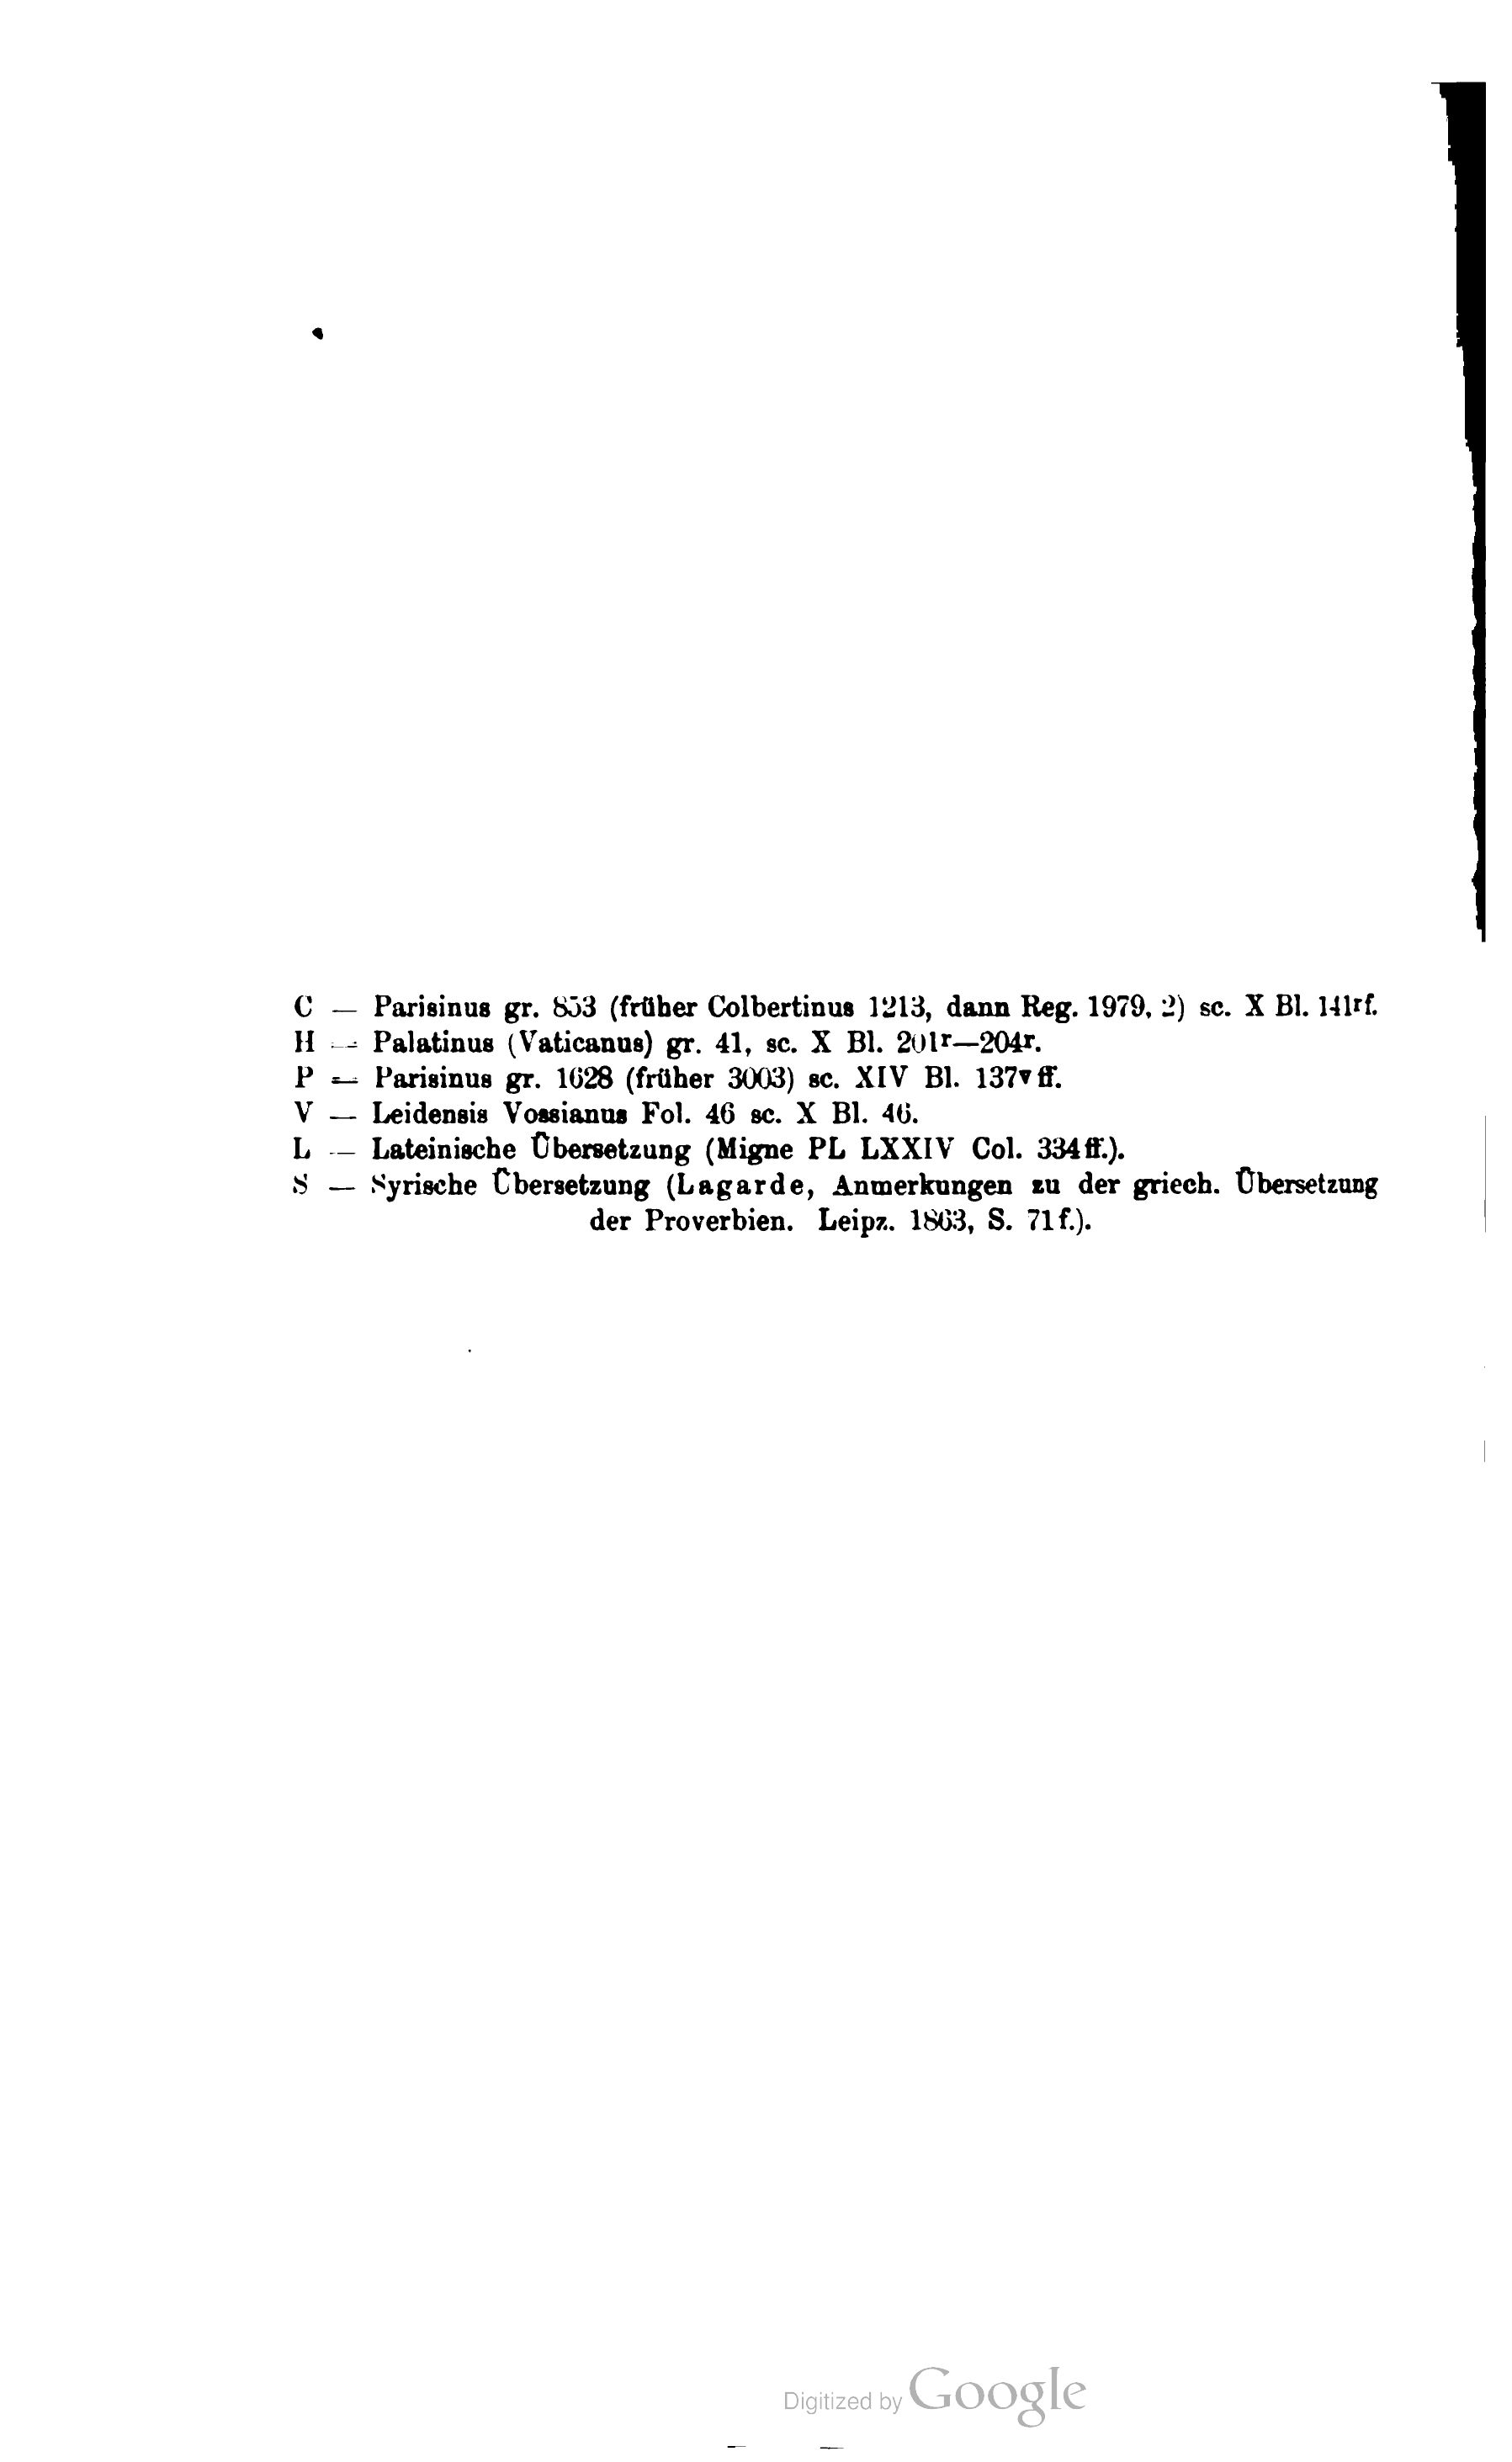 C — Parisinus gr. 853 (früher Colbertinus 1213, dann Reg. 1979, 2) sc. X Bl. 141r f.
H = Palatinus (Vaticanus) gr. 41, sc. X Bl. 201r—204r.
P = Parisinus gr. 1628 (früher 3003) sc. XIV Bl. 137v ff.
V — Leidensis Vossianus Fol. 46 sc. X Bl. 46.
L — Lateinische Übersetzung (Migne PL LXXIV Col. 334 ff.).
S — Syrische Übersetzung (Lagarde, Anmerkungen zu der griech. Übersetzung
der Proverbien. Leipz. 1863, S. 71 f.).
Digitized by Google